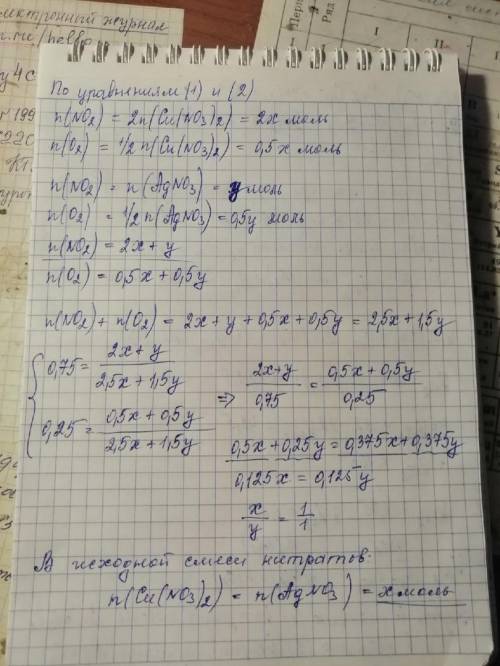 электронный журнал
По уравнениям (1) и (2)
n(NO₂) = 2n(Cu(NO₃)₂) = 2x моль
n(O₂) = 1/2 n(Cu(NO₃)₂) = 0,5x моль
n(NO₂) = n(AgNO₃) = y моль
n(O₂) = 1/2 n(AgNO₃) = 0,5y моль
n(NO₂) = 2x + y
n(O₂) = 0,5x + 0,5y
n(NO₂) + n(O₂) = 2x + y + 0,5x + 0,5y = 2,5x + 1,5y
0,75 = (2x + y)/(2,5x + 1,5y)
0,25 = (0,5x + 0,5y)/(2,5x + 1,5y)
⇒ (2x+y)/0,75 = (0,5x + 0,5y)/0,25
0,5x + 0,25y = 0,375x + 0,375y
0,125x = 0,125y
x/y = 1/1
В исходной смеси нитратов.
n(Cu(NO₃)₂) = n(AgNO₃) = x моль